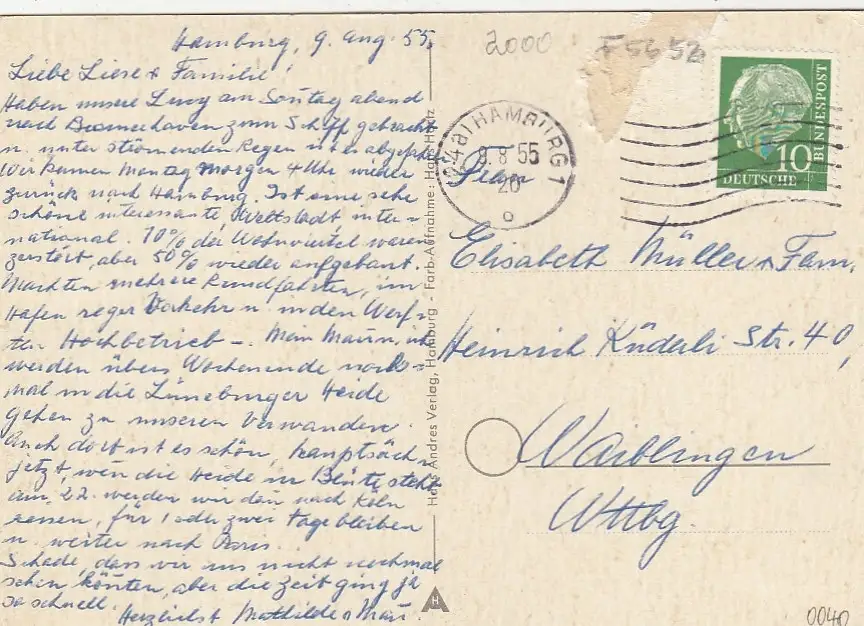 Hamburg, 9. Aug. 55.
Liebe Liese & Familie!
Haben unsere Lucy am Sontag abend
nach Bremerhaven zum Schiff gebracht
u. unter strömenden Regen ist es abgefahr
Wir kamen Montag Morgen 4 Uhr wieder
zurück nach Hamburg. Ist eine sehr
schöne interessante Weltstadt, inter=
national. 70% der Wohnviertel waren
zerstört, aber 50% wieder aufgebaut.
Machten mehrere Rundfahrten, im
Hafen reger Verkehr u. in den Werf=
ten Hochbetrieb –. Mein Mann, ich
werden übers Wochenende noch=
mal in die Lüneburger Heide
gehen zu unseren Verwanden.
Auch dort ist es schön, hauptsäch=
jetzt, wen die Heide in Blüte steht
am 22. werden wir dan nach Köln
reisen, für 1 oder zwei Tage bleiben
u. weiter nach Paris.
Schade, dass wir uns nicht nochmal
sehen könten, aber die Zeit ging ja
so schnell.
Herzlichst Mathilde u Max.
Hans Andres Verlag, Hamburg - Farb-Aufnahme: Hans Hartz
2000
F5652
(24a) HAMBURG 1
9.8.55
20
DEUTSCHE
BUNDESPOST
10
Elisabeth Müller & Fam.
Heinrich Küderli Str. 40,
Waiblingen
Wttbg.
HA
0040